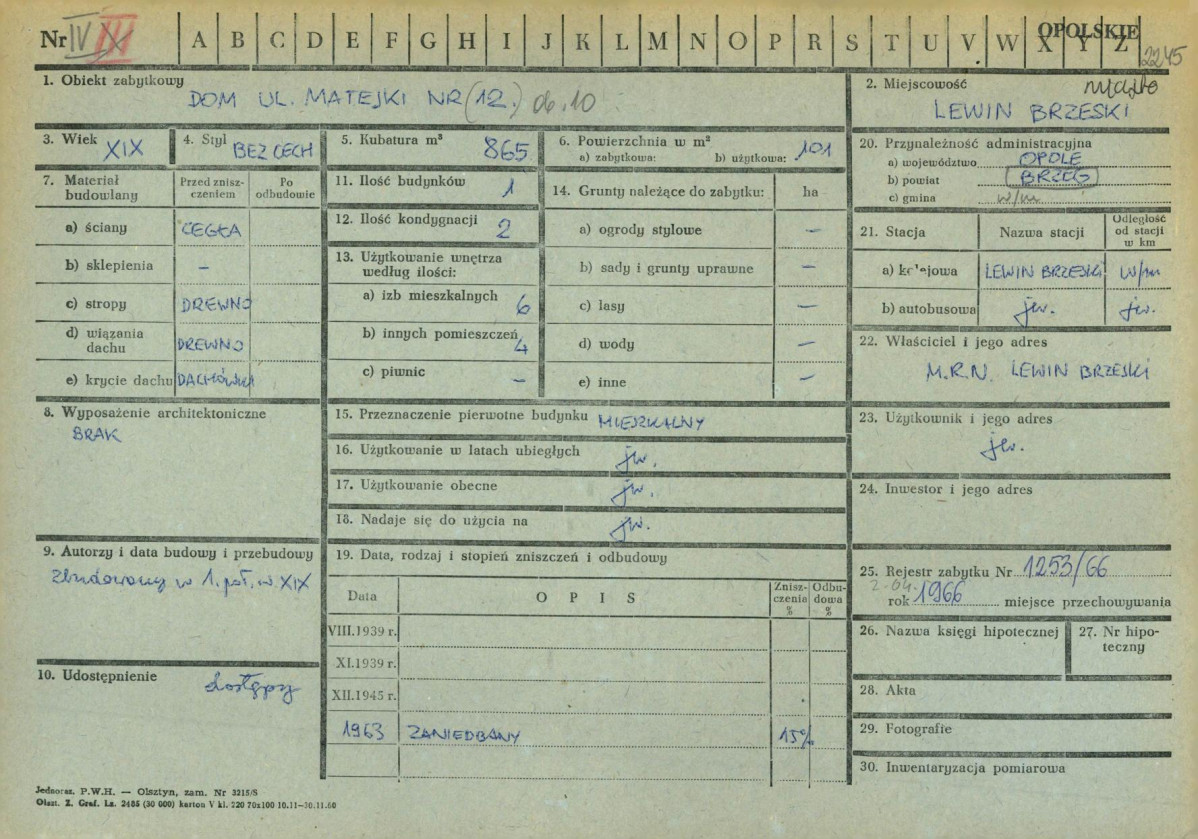 Nr IV III
A B C D E F G H I J K L M N O P R S T U V W X Y Z
OPOLSKIE
2245
1. Obiekt zabytkowy
DOM UL. MATEJKI NR (12.) ob. 10
2. Miejscowość
miasto
LEWIN BRZESKI
3. Wiek XIX
4. Styl BEZ CECH
5. Kubatura m³ 865
6. Powierzchnia w m²
a) zabytkowa: b) użytkowa: 101
7. Materiał budowlany
Przed zniszczeniem
Po odbudowie
a) ściany CEGŁA
b) sklepienia –
c) stropy DREWNO
d) wiązania dachu DREWNO
e) krycie dachu DACHÓWKA
8. Wyposażenie architektoniczne
BRAK
9. Autorzy i data budowy i przebudowy
Zbudowany w 1. poł. w. XIX
10. Udostępnienie
dostępny
11. Ilość budynków 1
12. Ilość kondygnacji 2
13. Użytkowanie wnętrza według ilości:
a) izb mieszkalnych 6
b) innych pomieszczeń 4
c) piwnic –
14. Grunty należące do zabytku: ha
a) ogrody stylowe –
b) sady i grunty uprawne –
c) lasy –
d) wody –
e) inne –
15. Przeznaczenie pierwotne budynku MIESZKALNY
16. Użytkowanie w latach ubiegłych jw.
17. Użytkowanie obecne jw.
18. Nadaje się do użycia na jw.
19. Data, rodzaj i stopień zniszczeń i odbudowy
Data
OPIS
Zniszczenia %
Odbudowa %
VIII.1939 r.
XI.1939 r.
XII.1945 r.
1963 ZANIEDBANY 15%
20. Przynależność administracyjna
a) województwo OPOLE
b) powiat BRZEG
c) gmina w/m
21. Stacja
Nazwa stacji
Odległość od stacji w km
a) kolejowa LEWIN BRZESKI w/m
b) autobusowa jw. jw.
22. Właściciel i jego adres
M.R.N. LEWIN BRZESKI
23. Użytkownik i jego adres
jw.
24. Inwestor i jego adres
25. Rejestr zabytku Nr 1253/66
2.04.
rok 1966 miejsce przechowywania
26. Nazwa księgi hipotecznej
27. Nr hipoteczny
28. Akta
29. Fotografie
30. Inwentaryzacja pomiarowa
Jednoraz. P.W.H. — Olsztyn, zam. Nr 3215/S
Olszt. Z. Graf. Lz. 2485 (30 000) karton V kl. 220 70x100 10.11—30.11.60